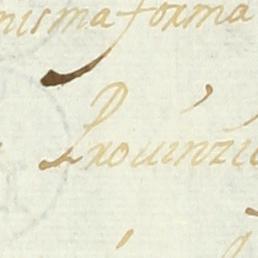 nisma forma
Prouinzia